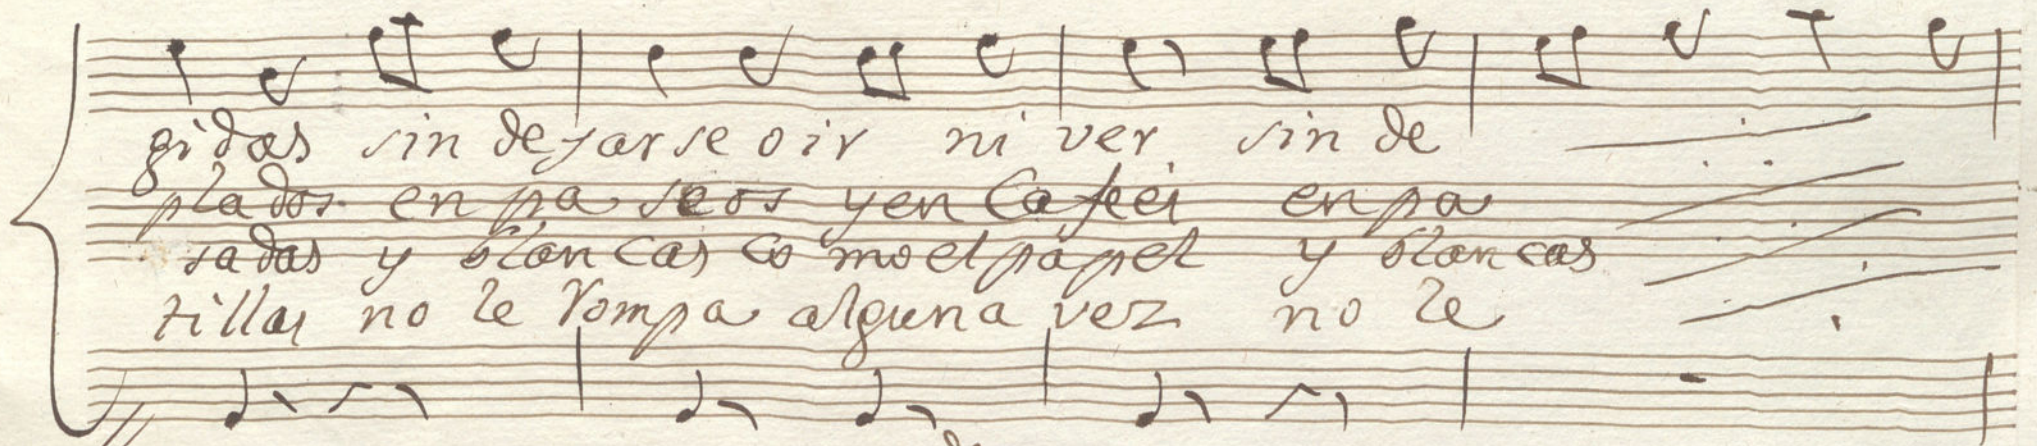 gidas sin dejarse oir ni ver sin de
plados en paseos y en Cafees en pa
sadas y blancas como el papel y blancas
tillas no le rompa alguna vez no le